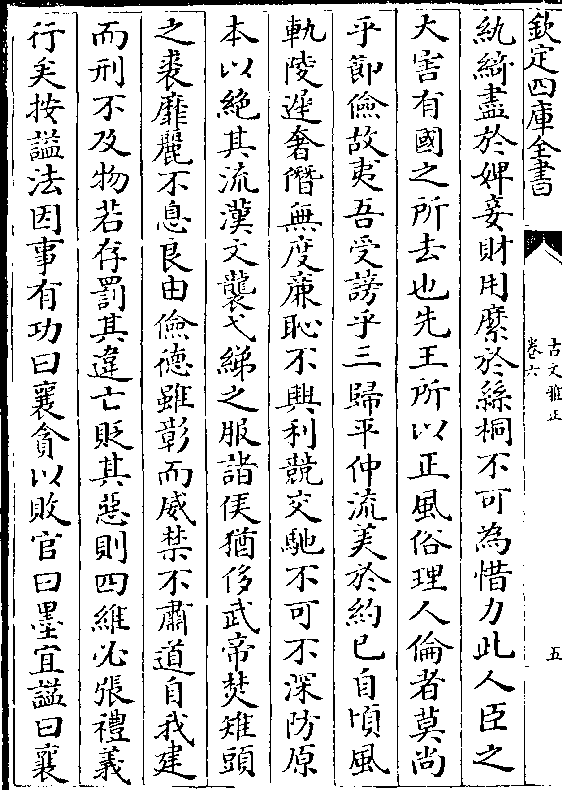 欽定四庫全書
古文雅正
卷六
五
紈綺盡於婢妾財用縻於絲桐不可為惜力此人臣之
大害有國之所去也先王所以正風俗理人倫者莫尚
乎節儉故夷吾受謗乎三歸平仲流美於約已自頃風
軌陵遲奢僭無度廉恥不興利競交馳不可不深防原
本以絕其流漢文襲弋綈之服諸侯猶侈武帝焚雉頭
之裘靡麗不息良由儉德雖彰而威禁不肅道自我建
而刑不及物若存罰其違亡貶其惡則四維必張禮義
行矣按謚法因事有功曰襄貪以敗官曰墨宜謚曰襄